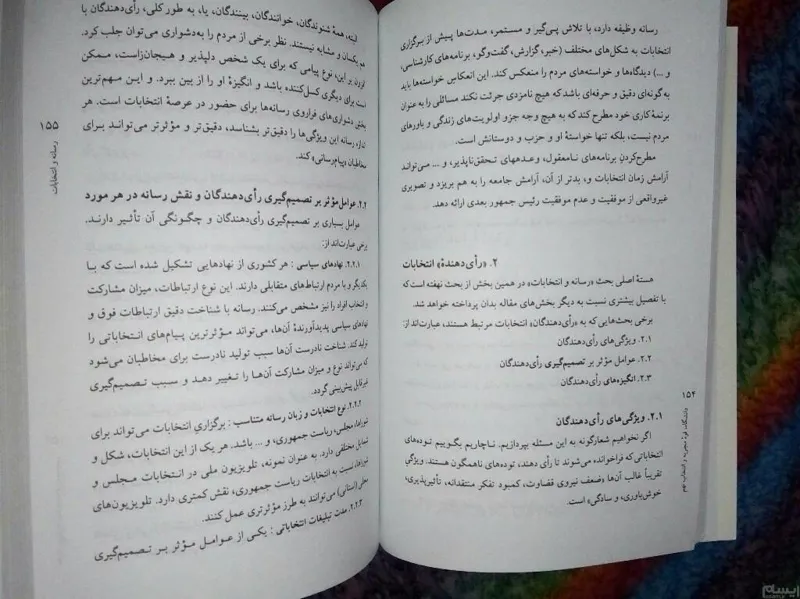 رسانه وظیفه دارد، با تلاش پی‌گیر و مستمر، مدت‌ها پیش از برگزاری
انتخابات به شکل‌های مختلف (خبر، گزارش، گفت‌وگو، برنامه‌های کارشناسی،
و ...) دیدگاه‌ها و خواسته‌های مردم را منعکس کند. این انعکاس خواسته‌ها باید
به گونه‌ای دقیق و حرفه‌ای باشد که هیچ نامزدی جرئت نکند مسائلی را به عنوان
برنامهٔ کاری خود مطرح کند که به هیچ وجه جزو اولویت‌های زندگی و باورهای
مردم نیست، بلکه تنها خواستهٔ او و حزب و دوستانش است.
مطرح‌کردن برنامه‌های نامعقول، وعده‌های تحقق‌ناپذیر، و ... می‌تواند
آرامش زمان انتخابات و، بدتر از آن، آرامش جامعه را به هم بریزد و تصویری
غیرواقعی از موفقیت و عدم موفقیت رئیس جمهور بعدی ارائه دهد.
۲. «رأی‌دهندهٔ» انتخابات
هستهٔ اصلی بحث «رسانه و انتخابات» در همین بخش از بحث نهفته است که
با تفصیل بیشتری نسبت به دیگر بخش‌های مقاله بدان پرداخته خواهد شد.
برخی بحث‌هایی که به «رأی‌دهندگان» انتخابات مرتبط هستند، عبارت‌اند از:
۲.۱. ویژگی‌های رأی‌دهندگان
۲.۲. عوامل مؤثر بر تصمیم‌گیری رأی‌دهندگان
۲.۳. انگیزه‌های رأی‌دهندگان
۲.۱. ویژگی‌های رأی‌دهندگان
اگر نخواهیم شعارگونه به این مسئله بپردازیم، ناچاریم بگوییم توده‌های
انتخاباتی که فراخوانده می‌شوند تا رأی دهند، توده‌های ناهمگون هستند. ویژگیِ
تقریباً غالب آن‌ها «ضعف نیروی قضاوت، کمبود تفکر منتقدانه، تأثیرپذیری،
خوش‌باوری، و سادگی» است.
۱۵۴
البته، همهٔ شنوندگان، خوانندگان، بینندگان، یا، به طور کلی، رأی‌دهندگان با
هم یکسان و مشابه نیستند. نظر برخی از مردم را به‌دشواری می‌توان جلب کرد.
افزون بر این، نوع پیامی که برای یک شخص دلپذیر و هیجان‌زاست، ممکن
است برای دیگری کسل‌کننده باشد و انگیزهٔ او را از بین ببرد. و این مهم‌ترین
بخش دشواری‌های فراروی رسانه‌ها برای حضور در عرصهٔ انتخابات است. هر
رسانه این ویژگی‌ها را دقیق‌تر بشناسد، دقیق‌تر و مؤثرتر می‌تواند برای
مخاطبان «پیام‌رسانی» کند.
۲.۲. عوامل مؤثر بر تصمیم‌گیری رأی‌دهندگان و نقش رسانه در هر مورد
عوامل بسیاری بر تصمیم‌گیری رأی‌دهندگان و چگونگی آن تأثیر دارند.
برخی عبارت‌اند از:
۲.۲.۱. نهادهای سیاسی: هر کشوری از نهادهایی تشکیل شده است که با
یکدیگر و با مردم ارتباط‌های متقابلی دارند. این نوع ارتباطات، میزان مشارکت
و انتخاب افراد را نیز مشخص می‌کنند. رسانه با شناخت دقیق ارتباطات فوق و
نهادهای سیاسی پدیدآورندهٔ آن‌ها، می‌تواند مؤثرترین پیام‌های انتخاباتی را
تولید کند. شناخت نادرست آن‌ها سبب تولید نادرست برای مخاطبان می‌شود
که می‌تواند نوع و میزان مشارکت آن‌ها را تغییر دهد و سبب تصمیم‌گیری
غیرقابل پیش‌بینی گردد.
۲.۲.۲. نوع انتخابات و زبان رسانه متناسب: برگزاری انتخابات می‌تواند برای
شوراها، مجلس، ریاست جمهوری، و ... باشد. هر یک از این انتخابات، شکل و
مختلفی دارد. به عنوان نمونه، تلویزیون ملی در انتخابات مجلس و
شوراها، نسبت به انتخابات ریاست جمهوری، نقش کمتری دارد. تلویزیون‌های
محلی (استانی) می‌توانند به طرز مؤثرتری عمل کنند.
۲.۲.۳. مدت تبلیغات انتخاباتی: یکی از عوامل مؤثر بر تصمیم‌گیری
۱۵۵
رسانه و انتخابات